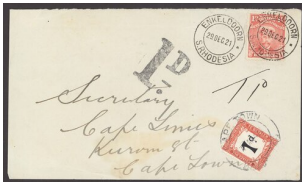 ENKELDOORN
29 DEC 21
S. RHODESIA
ENKELDOORN
29 DEC 21
RHODESIA
1D
T 1D
Secretary
Cape Times
Keerom St
Cape Town
1d.